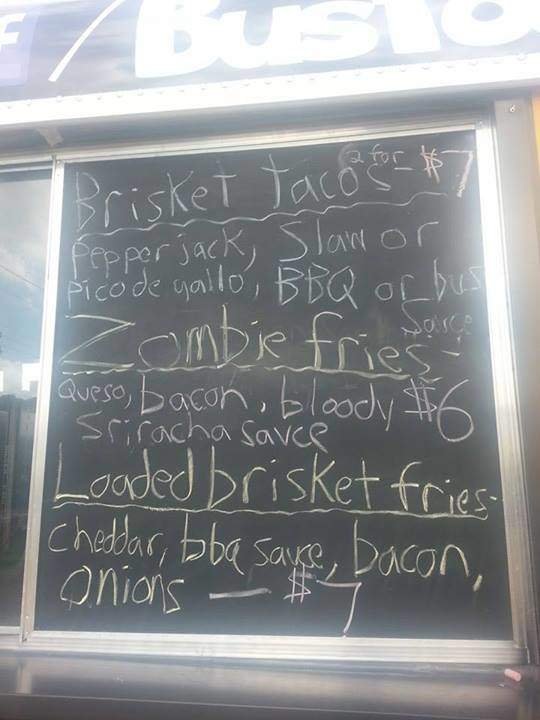 f / Busto
Brisket Tacos - 2 for $7
Pepper jack, Slaw or
pico de gallo, BBQ or bus
Sauce
Zombie fries -
Queso, bacon, bloody $6
Sriracha sauce
Loaded brisket fries-
Cheddar, bbq sauce, bacon,
onions — $7